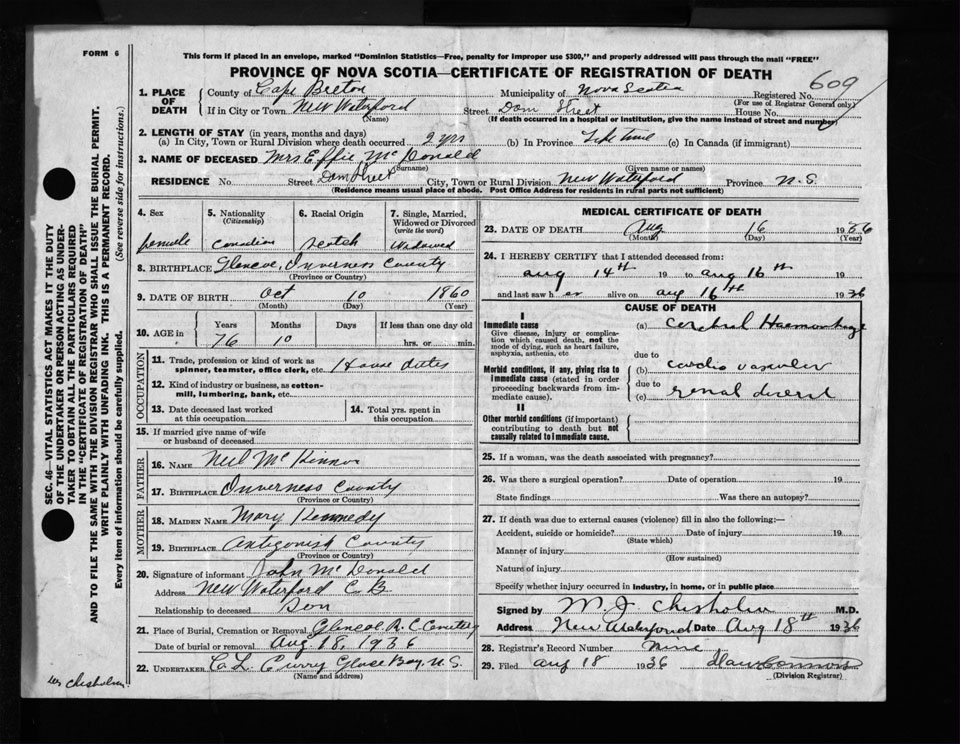 FORM 6
This form if placed in an envelope, marked "Dominion Statistics—Free, penalty for improper use $300," and properly addressed will pass through the mail "FREE"
PROVINCE OF NOVA SCOTIA—CERTIFICATE OF REGISTRATION OF DEATH
609
1. PLACE OF DEATH
County of Cape Breton Municipality of Nova Scotia Registered No.
(For use of Registrar General only)
If in City or Town New Waterford Street Dom Street House No.
(Name) (If death occurred in a hospital or institution, give the name instead of street and number)
2. LENGTH OF STAY (in years, months and days)
(a) In City, Town or Rural Division where death occurred 9 yrs (b) In Province Life Time (c) In Canada (if immigrant)
3. NAME OF DECEASED Mrs Effie Mc Donald
(Surname) (Given name or names)
RESIDENCE No. Street Dom Street City, Town or Rural Division New Waterford Province N.S.
(Residence means usual place of abode. Post Office Address for residents in rural parts not sufficient)
4. Sex 5. Nationality (Citizenship) 6. Racial Origin 7. Single, Married, Widowed or Divorced (write the word)
female Canadian Scotch Widowed
8. BIRTHPLACE Glencoe, Inverness County
(Province or Country)
9. DATE OF BIRTH Oct 10 1860
(Month) (Day) (Year)
10. AGE in Years Months Days If less than one day old
76 10 hrs. or min.
OCCUPATION
11. Trade, profession or kind of work as spinner, teamster, office clerk, etc. House duties
12. Kind of industry or business, as cotton-mill, lumbering, bank, etc.
13. Date deceased last worked at this occupation
14. Total yrs. spent in this occupation
15. If married give name of wife or husband of deceased
FATHER
16. NAME Neil Mc
17. BIRTHPLACE Inverness County
(Province or Country)
MOTHER
18. MAIDEN NAME Mary Kennedy
19. BIRTHPLACE Antigonish County
(Province or Country)
20. Signature of informant John Mc Donald
Address New Waterford C B
Relationship to deceased Son
21. Place of Burial, Cremation or Removal Glencoe R. C. Cemetery
Date of burial or removal Aug 18, 1936
22. UNDERTAKER C. L. Curry Glace Bay, N.S.
(Name and address)
MEDICAL CERTIFICATE OF DEATH
23. DATE OF DEATH Aug 16 1936
(Month) (Day) (Year)
24. I HEREBY CERTIFY that I attended deceased from:
aug 14th 19 to aug 16th 19
and last saw her alive on aug 16th 1936
CAUSE OF DEATH
I
Immediate cause
Give disease, injury or complication which caused death, not the mode of dying, such as heart failure, asphyxia, asthenia, etc
(a) Cerebral Haemorrhage
due to
Morbid conditions, if any, giving rise to immediate cause (stated in order proceeding backwards from immediate cause).
(b) cardio vascular
due to
(c) renal disease
II
Other morbid conditions (if important) contributing to death but not causally related to immediate cause.
25. If a woman, was the death associated with pregnancy?
26. Was there a surgical operation? Date of operation 19
State findings Was there an autopsy?
27. If death was due to external causes (violence) fill in also the following:—
Accident, suicide or homicide? Date of injury 19
(State which)
Manner of injury
(How sustained)
Nature of injury
Specify whether injury occurred in industry, in home, or in public place
Signed by M. J. Chisholm M.D.
Address New Waterford Date Aug 18th 1936
28. Registrar's Record Number
29. Filed aug 18 1936
(Division Registrar)
SEC. 46—VITAL STATISTICS ACT MAKES IT THE DUTY
OF THE UNDERTAKER OR PERSON ACTING AS UNDER-
TAKER TO OBTAIN ALL THE PARTICULARS REQUIRED
IN THE "CERTIFICATE OF REGISTRATION OF DEATH"
AND TO FILE THE SAME WITH THE DIVISION REGISTRAR WHO SHALL ISSUE THE BURIAL PERMIT.
WRITE PLAINLY WITH UNFADING INK. THIS IS A PERMANENT RECORD.
Every item of information should be carefully supplied. (See reverse side for instructions.)
Chisholm